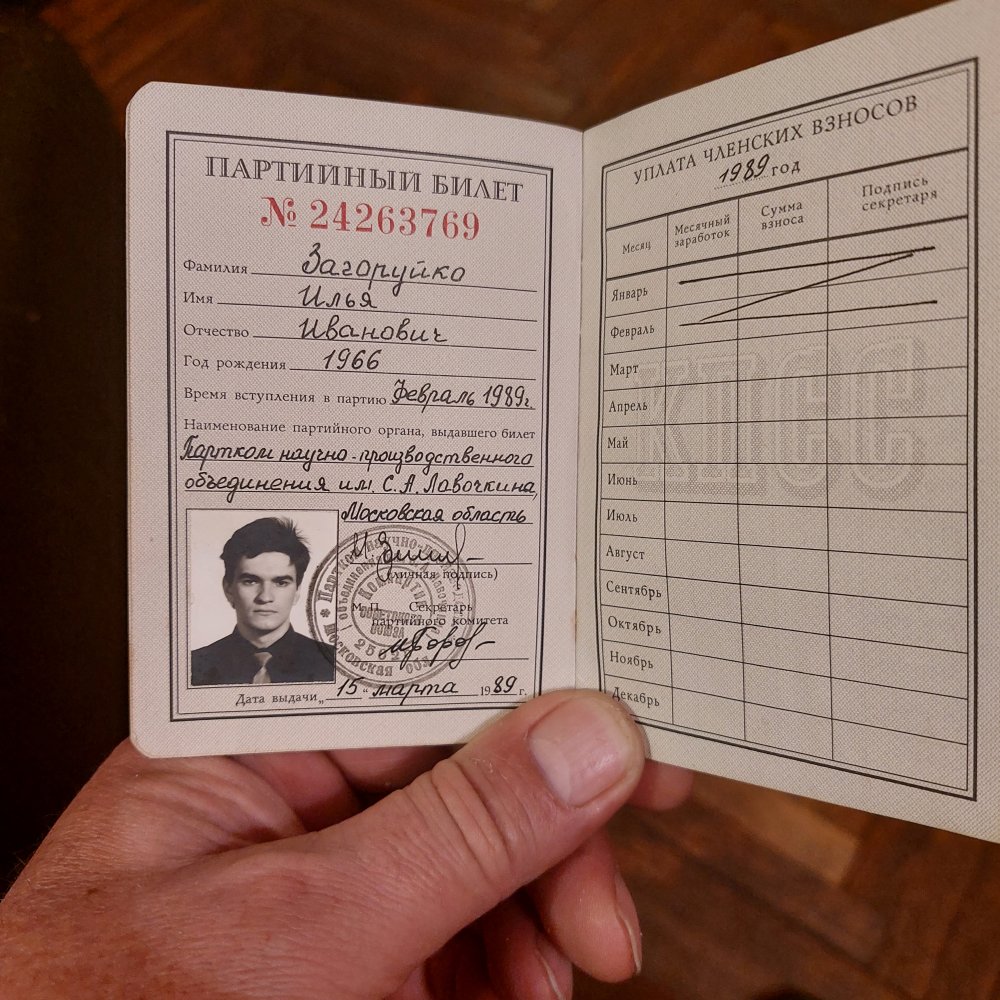 ПАРТИЙНЫЙ БИЛЕТ
№ 24263769
Фамилия Загоруйко
Имя Илья
Отчество Иванович
Год рождения 1966
Время вступления в партию Февраль 1989г.
Наименование партийного органа, выдавшего билет
Партком научно-производственного
объединения им. С.А. Лавочкина,
Московская область
(личная подпись)
М.П. Секретарь
партийного комитета
Дата выдачи „15“ марта 1989 г.
Московская обл
УПЛАТА ЧЛЕНСКИХ ВЗНОСОВ
1989 год
Месяц
Месячный заработок
Сумма взноса
Подпись секретаря
Январь
Февраль
Март
Апрель
Май
Июнь
Июль
Август
Сентябрь
Октябрь
Ноябрь
Декабрь
КПСС